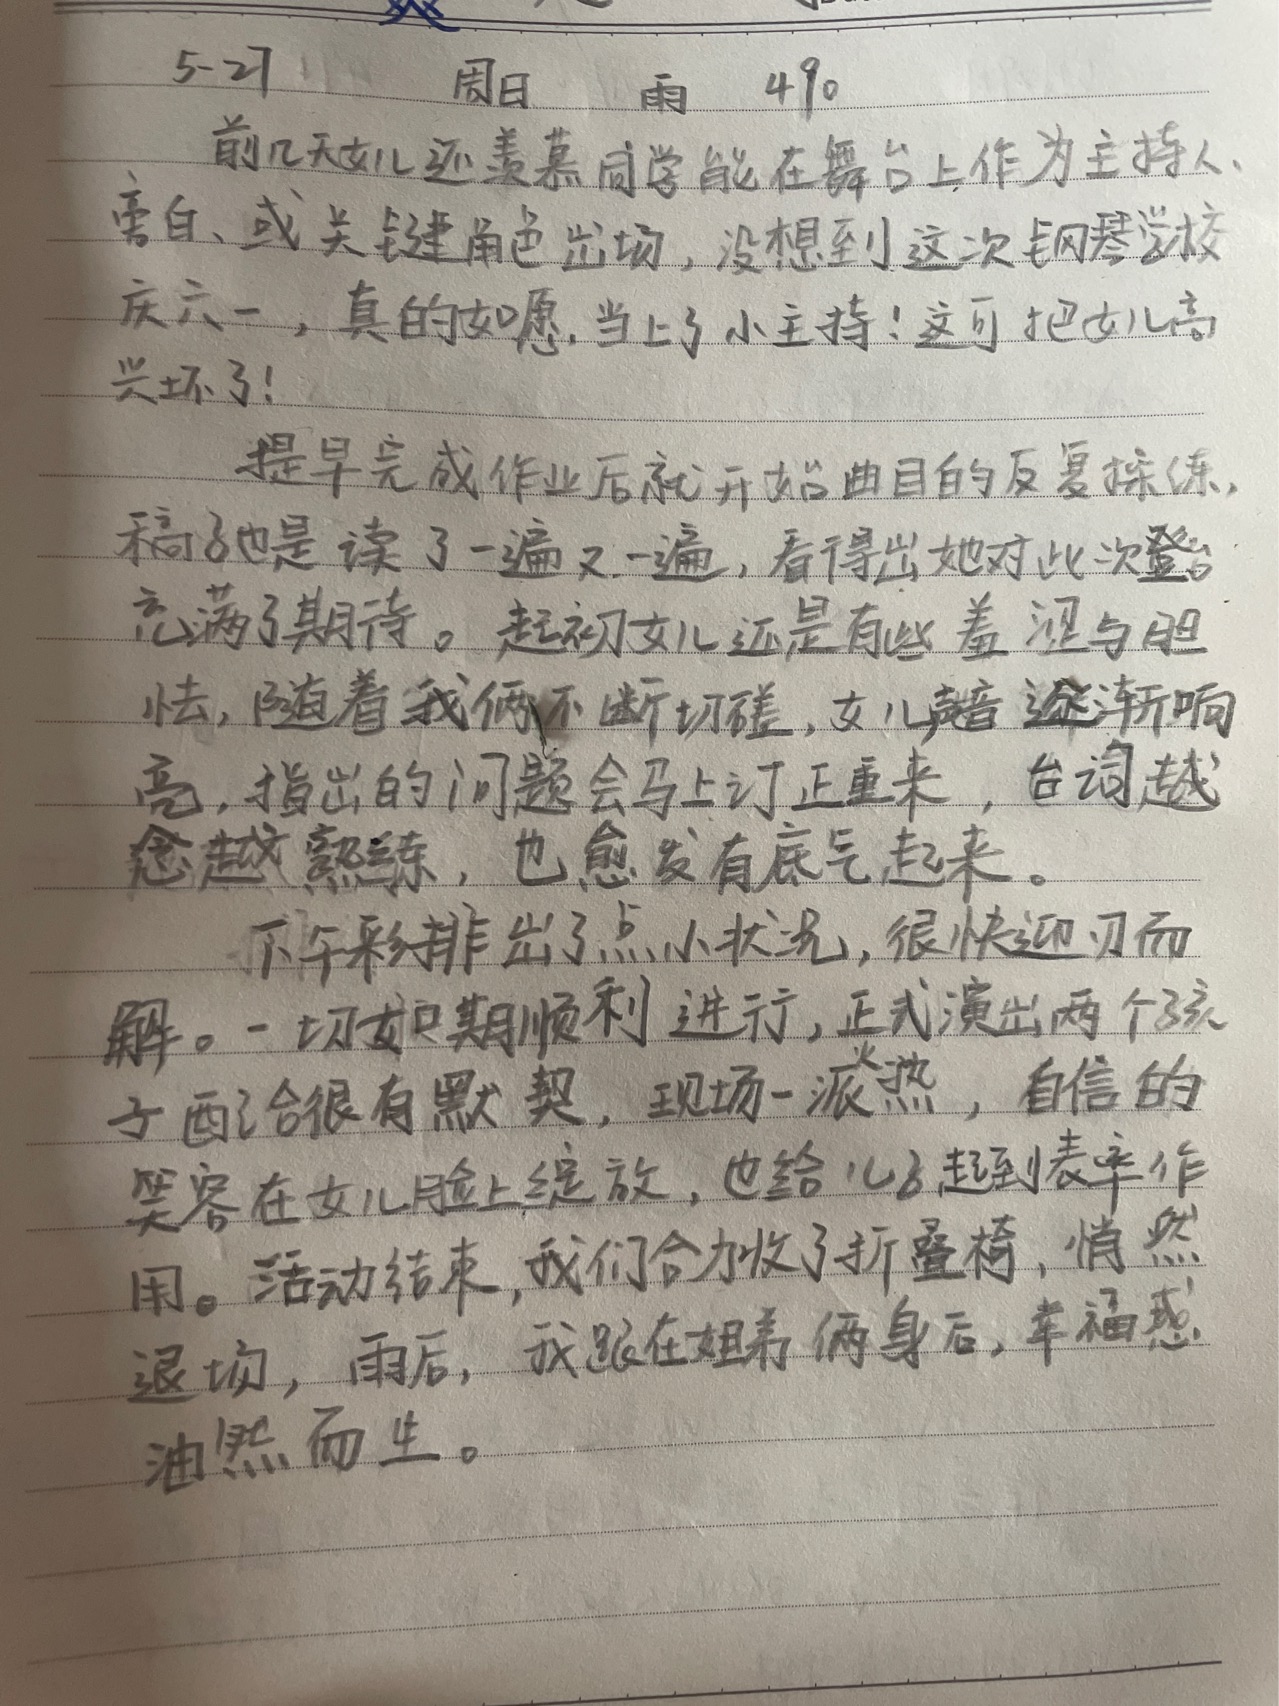 5-27 周日 雨 490
前几天女儿还羡慕同学能在舞台上作为主持人、
旁白、或关键角色出场，没想到这次钢琴学校
庆六一，真的如愿，当上了小主持！这可把女儿高
兴坏了！
提早完成作业后就开始曲目的反复操练，
稿子也是读了一遍又一遍，看得出她对此次登台
充满了期待。起初女儿还是有些羞涩与胆
怯，随着我俩不断切磋，女儿声音逐渐响
亮，指出的问题会马上订正重来，台词越
念越熟练，也愈发有底气起来。
下午彩排出了点小状况，很快迎刃而
解。一切如期顺利进行，正式演出两个孩
子配合很有默契，现场一派火热，自信的
笑容在女儿脸上绽放，也给儿子起到表率作
用。活动结束，我们合力收了折叠椅，悄然
退场，雨后，我跟在姐弟俩身后，幸福感
油然而生。